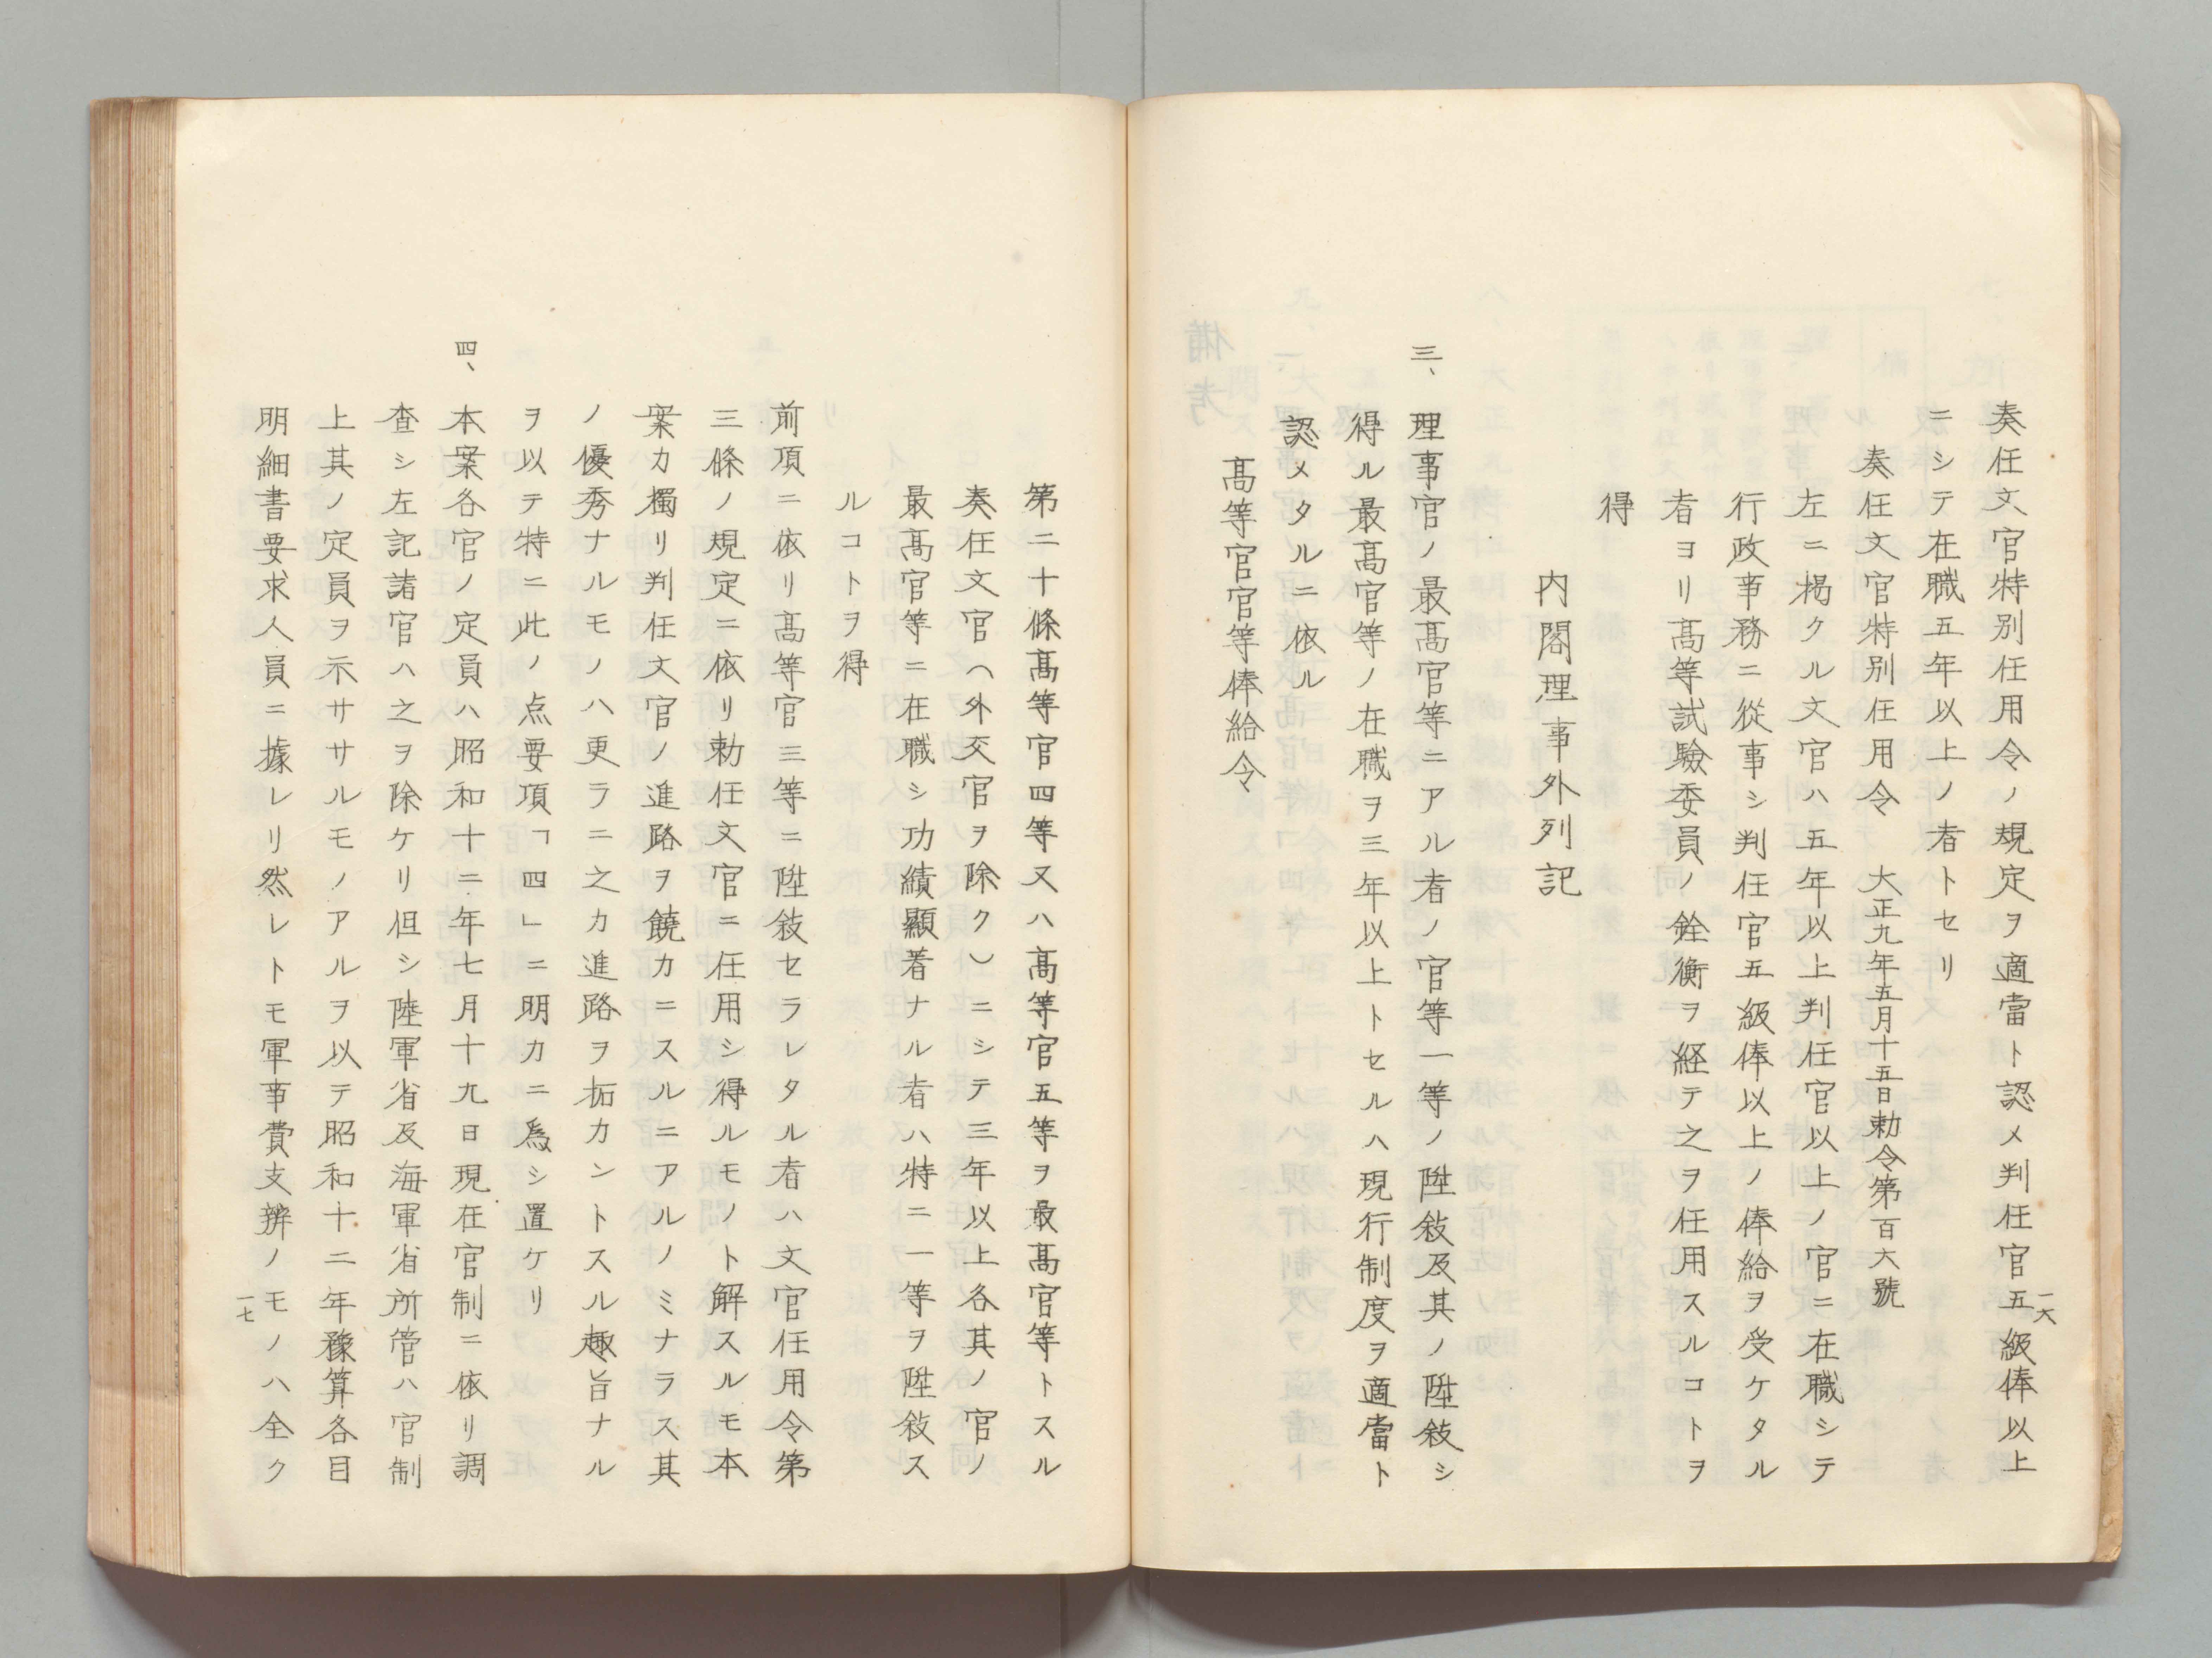 奏任文官特別任用令ノ規定ヲ適當ト認メ判任官五級俸以上
ニシテ在職五年以上ノ者トセリ
奏任文官特別任用令 大正九年五月十五日勅令第百六號
左ニ掲クル文官ハ五年以上判任官以上ノ官ニ在職シテ
行政事務ニ從事シ判任官五級俸以上ノ俸給ヲ受ケタル
者ヨリ髙等試驗委員ノ銓衡ヲ経テ之ヲ任用スルコトヲ
得
内閣理事外列記
三、理事官ノ最髙官等ニアル者ノ官等一等ノ陞敍及其ノ陞敍シ
得ル最髙官等ノ在職ヲ三年以上トセルハ現行制度ヲ適當ト
認メタルニ依ル
髙等官官等俸給令
一六
第二十條髙等官四等又ハ髙等官五等ヲ最髙官等トスル
奏任文官(外交官ヲ除ク)ニシテ三年以上各其ノ官ノ
最髙官等ニ在職シ功績顯著ナル者ハ特ニ一等ヲ陞敍ス
ルコトヲ得
前項ニ依リ髙等官三等ニ陞敍セラレタル者ハ文官任用令第
三條ノ規定ニ依リ勅任文官ニ任用シ得ルモノト解スルモ本
案カ獨リ判任文官ノ進路ヲ饒カニスルニアルノミナラス其
ノ優秀ナルモノハ更ラニ之カ進路ヲ拓カントスル趣旨ナル
ヲ以テ特ニ此ノ点要項「四」ニ明カニ爲シ置ケリ
四、本案各官ノ定員ハ昭和十二年七月十九日現在官制ニ依リ調
査シ左記諸官ハ之ヲ除ケリ但シ陸軍省及海軍省所管ハ官制
上其ノ定員ヲ示ササルモノアルヲ以テ昭和十二年豫算各目
明細書要求人員ニ據レリ然レトモ軍事費支辨ノモノハ全ク
一七